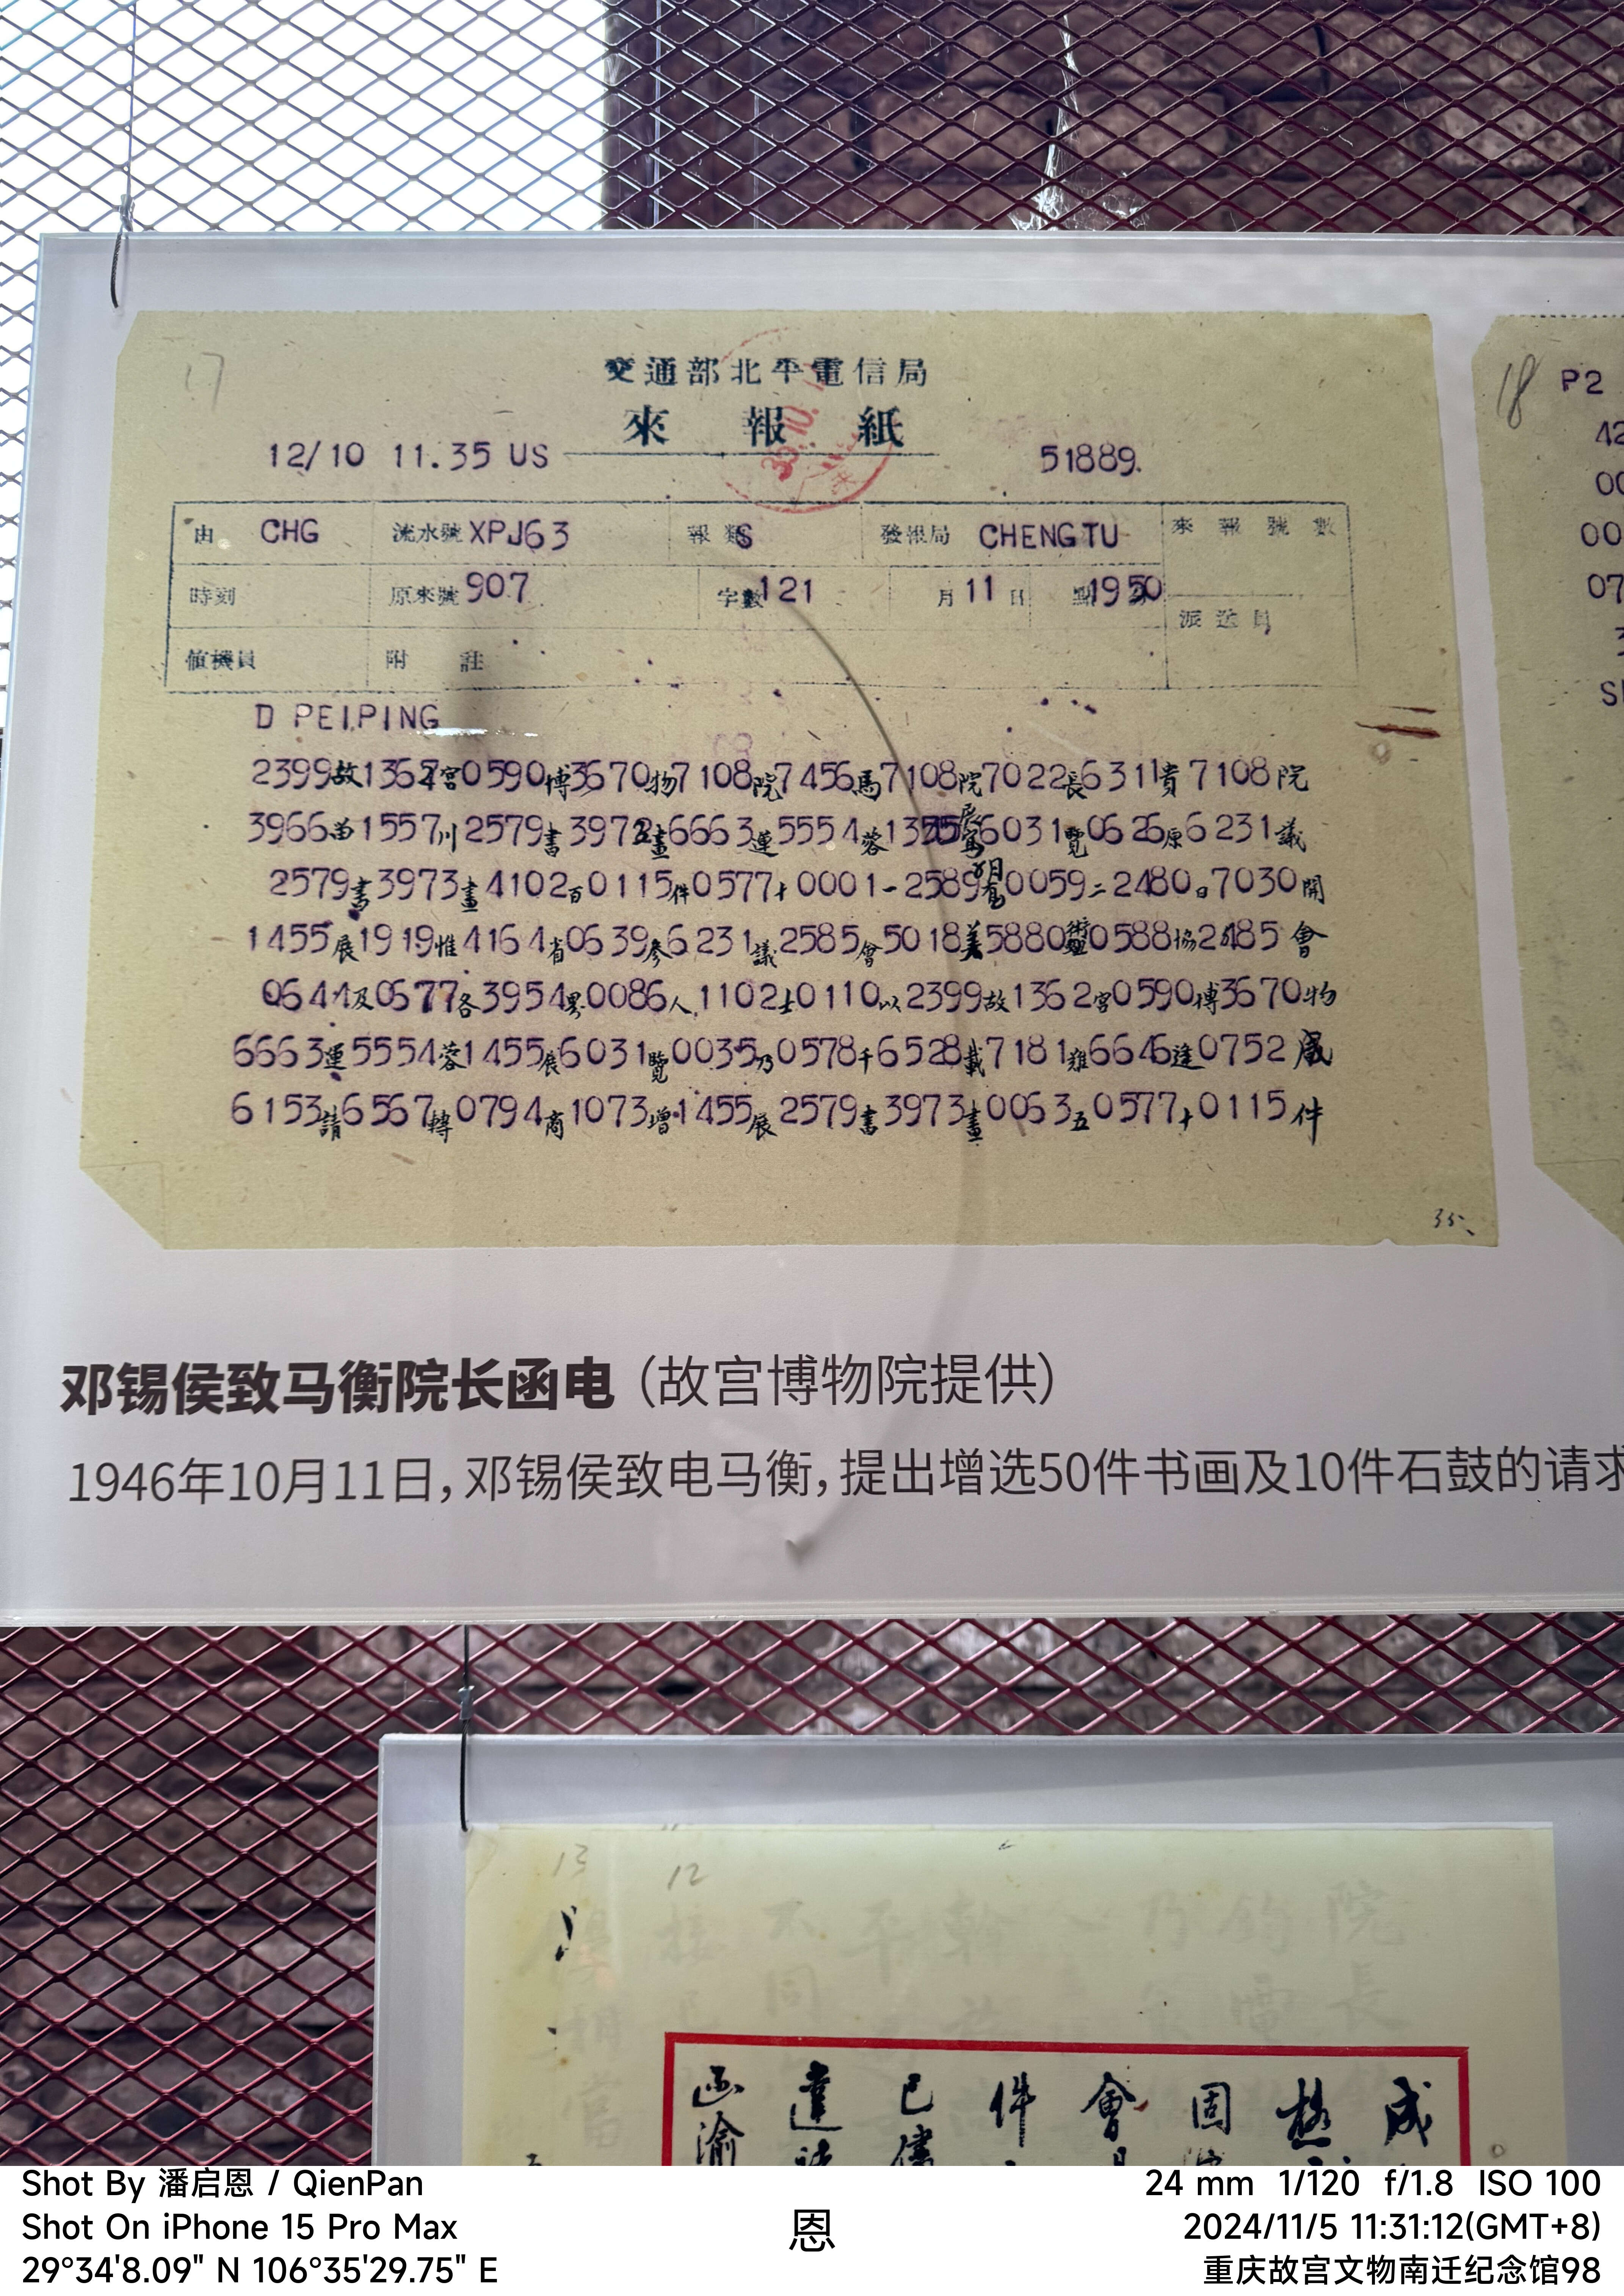 17
交通部北平電信局
來報紙
12/10 11.35 US
51889.
由 CHG 流水號 XPJ63 報類 S 發報局 CHENGTU 來報號數
時刻 原來號 907 字數 121 月 11 日 點 1950
派送員
值機員 附註
D PEIPING
2399故1362宮0590博3670物7108院7456馬7108院7022長6311貴7108院
3966苗1557川2579書3973畫6663運5554蓉1355展6031覽0626原6231議
2579書3973畫4102百0115件0577十0001一2589月0059二2480日7030開
1455展1919惟4164省0639參6231議2585會5018美5880術0588協2485會
0644及0677各3954界0086人1102士0110以2399故1362宮0590博3670物
6663運5554蓉1455展6031覽0035乃0578千6528載7181難6646逢0752咸
6153請6567轉0794商1073增1455展2579書3973畫0063五0577十0115件
35
18
P2
42
00
00
07
邓锡侯致马衡院长函电（故宫博物院提供）
1946年10月11日，邓锡侯致电马衡，提出增选50件书画及10件石鼓的请求
13
12
函 達 已 件 會 固 極 成
渝
Shot By 潘启恩 / QienPan
Shot On iPhone 15 Pro Max
29°34'8.09" N 106°35'29.75" E
恩
24 mm 1/120 f/1.8 ISO 100
2024/11/5 11:31:12(GMT+8)
重庆故宫文物南迁纪念馆98